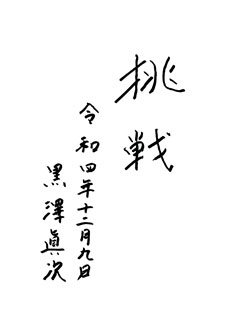 挑戦
令和四年十二月九日
黒澤眞次